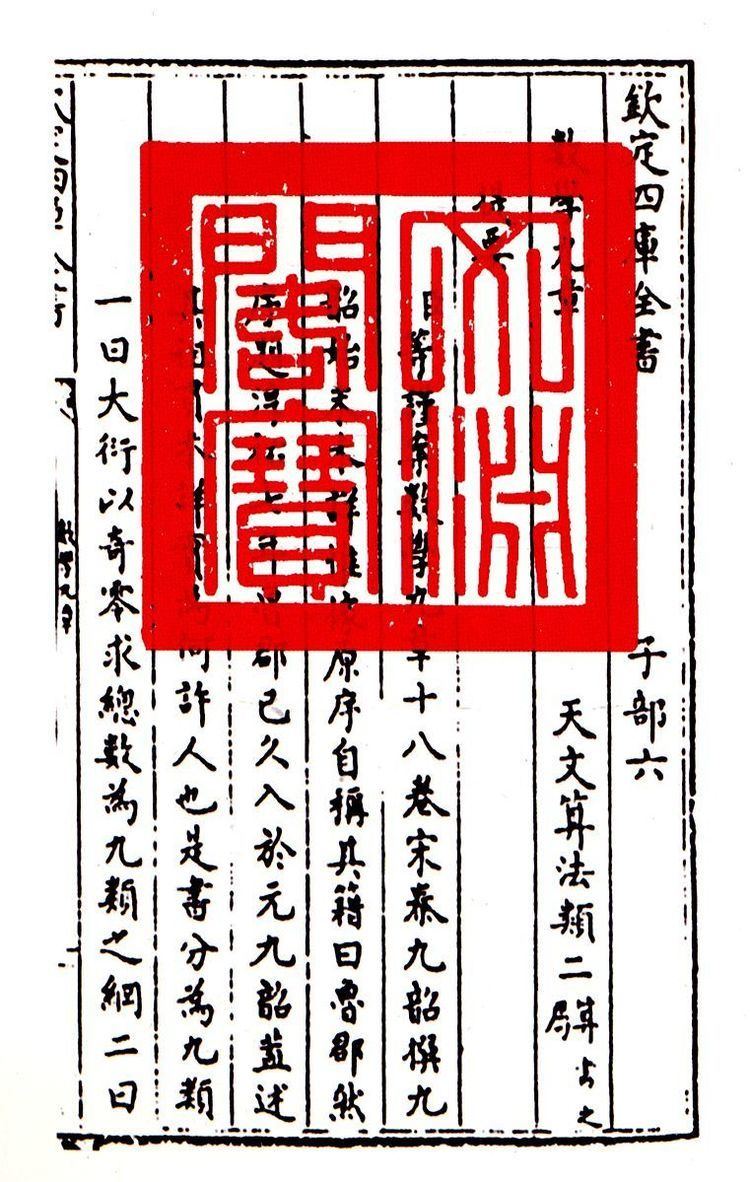 欽定四庫全書 子部六
數學九章 天文算法類二 算書之屬
提要
臣等謹案數學九章十八卷宋秦九韶撰九
韶始末未詳惟據原序自稱其籍曰魯郡然
序題淳祐七年魯郡已久入於元九韶葢述
其祖貫未詳實為何許人也是書分為九類
一曰大衍以奇零求總數為九類之綱二曰
數學九章
文淵閣寶